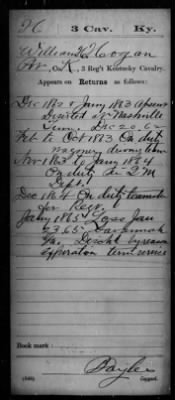 H 3 Cav. Ky.
William H Hogan
Pr., Co. K, 3 Reg't Kentucky Cavalry.
Appears on Returns as follows:
Dec 1862 & Jany 1863 Absent
Nashville
Tenn. Dec 20, 62
Feb to Oct 1863 On duty
Wagoner driving team
Nov 1863 to Jany 1864
On duty in Q M
Dept.
Dec 1864 On duty teamster
for Regt.
Jany 1865 Loss Jan
23, 65 Savannah
Ga. Dischd by reason
expiration term service
Book mark:
Bayler
Copyist.